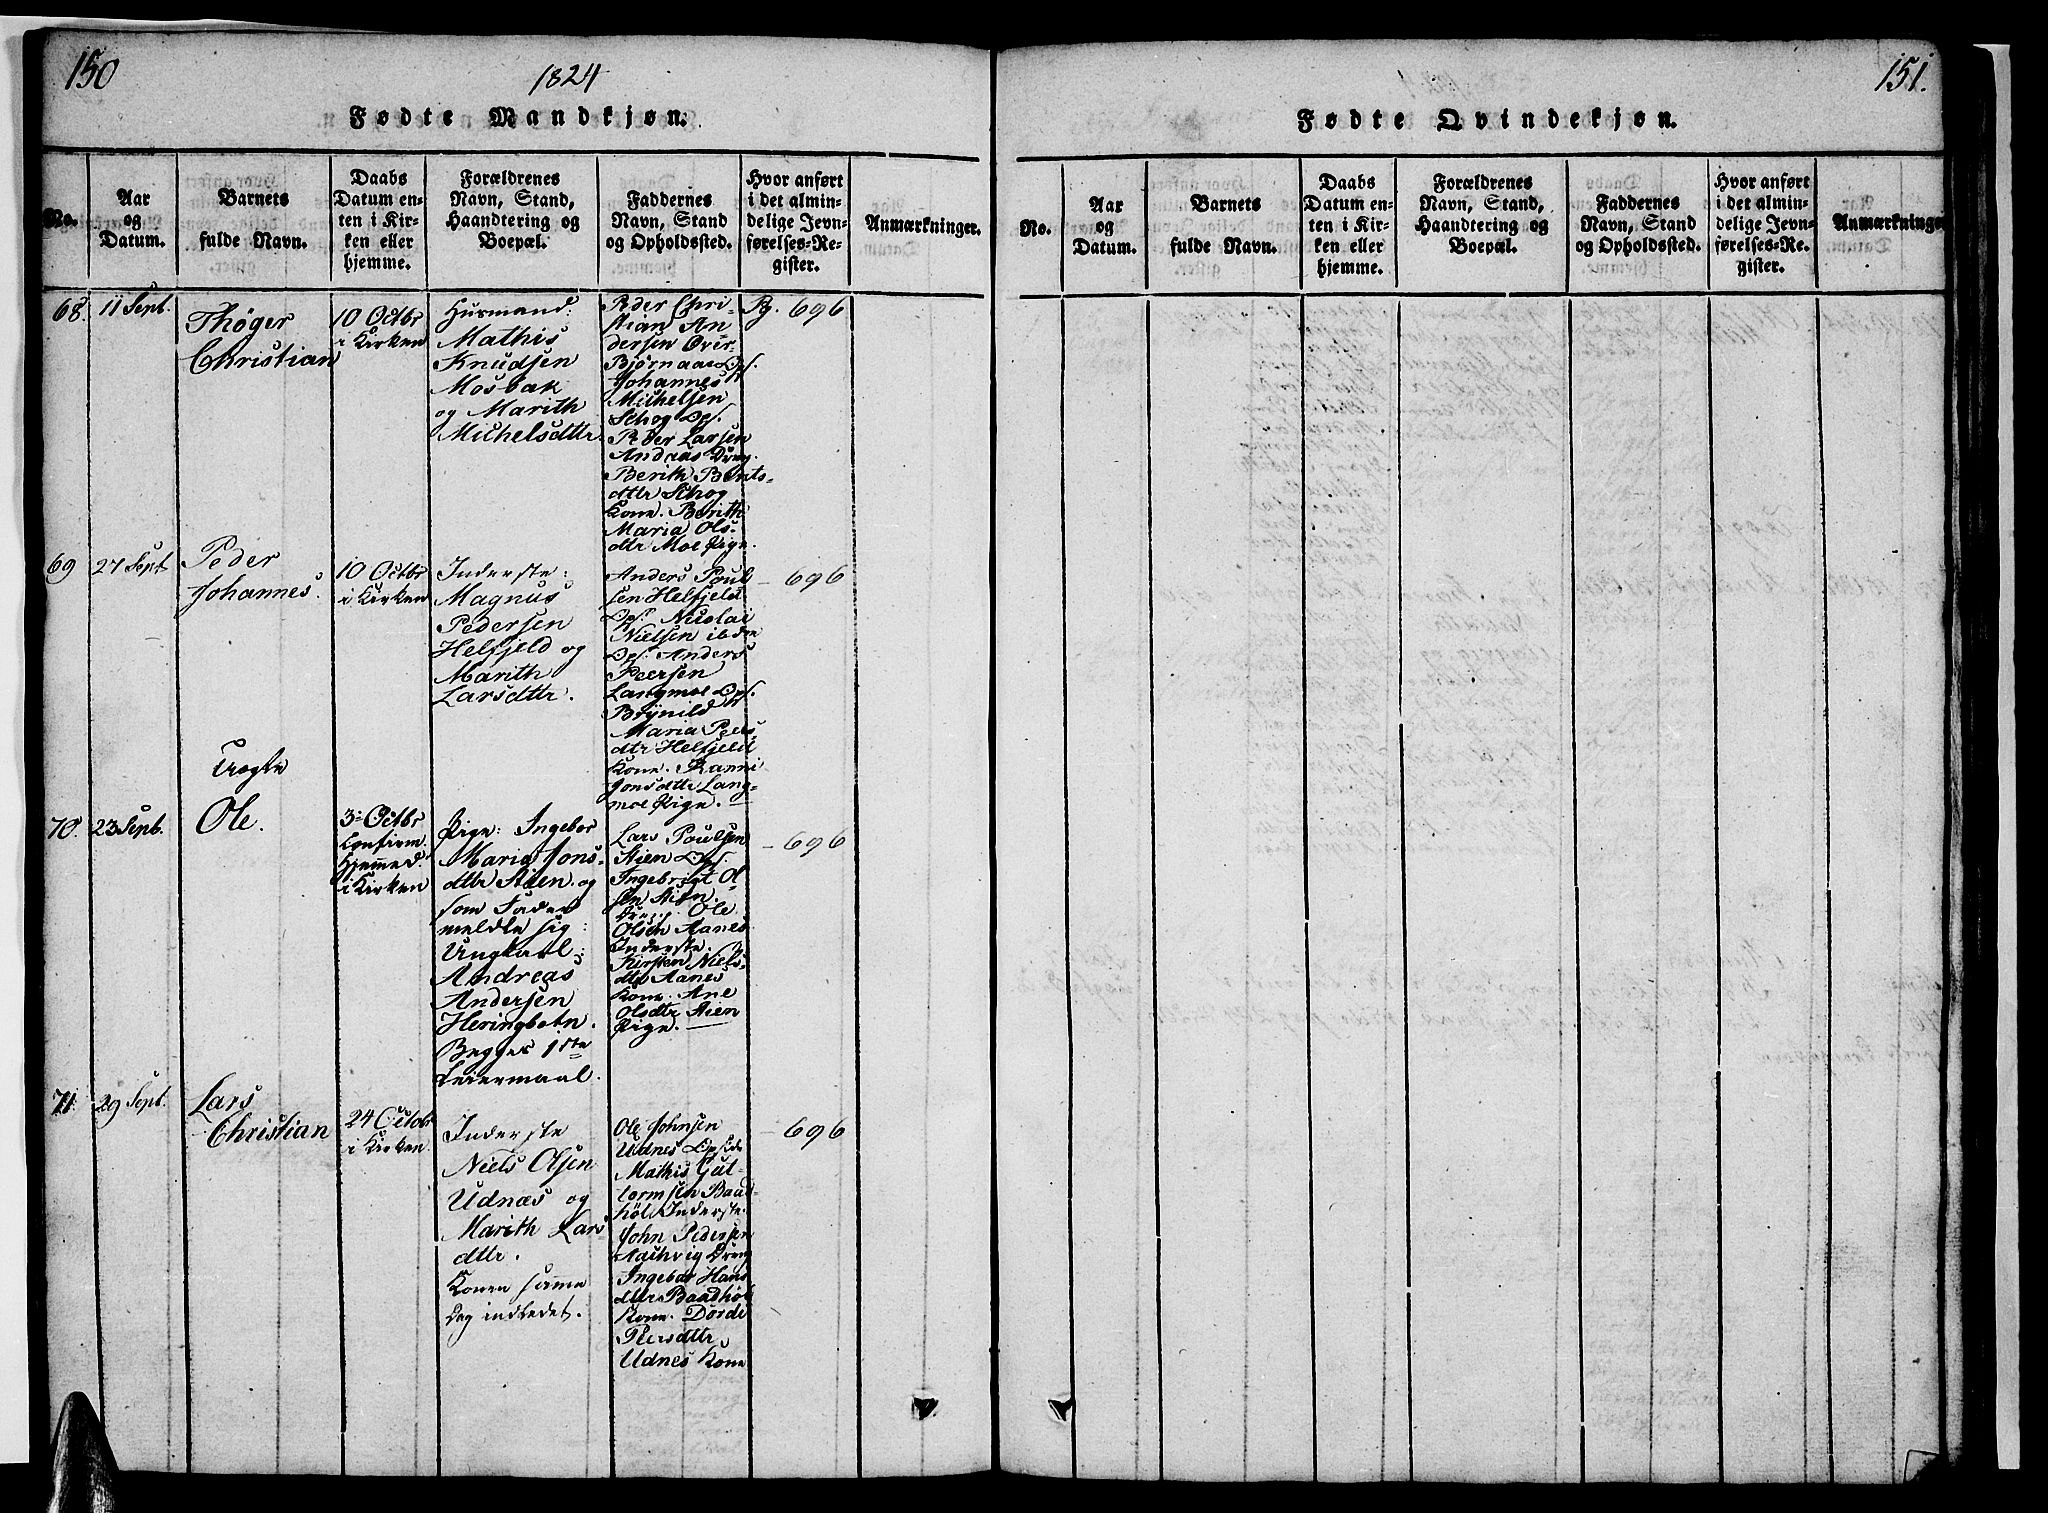 150
1824
Fødte Mandkjøn.
No.
Aar
og
Datum.
Barnets
fulde Navn.
Daabs
Datum en-
ten i Kir-
ken eller
hjemme.
Forældrenes
Navn, Stand,
Haandtering og
Boepæl.
Faddernes
Navn, Stand
og Opholdssted.
Hvor anført
i det almin-
delige Jevn-
førelses-Re-
gister.
Anmærkninger.
68.
11 Sept.
Thøger
Christian
10 Octbr
i Kirken
Huusmand:
Mathis
Knudsen
Mosbak
og Marith
Michelsdttr.
Peder Chri-
stian An
dersen Over
Bjørnaae Ops.
Johannes
Michelsen
Schog Ops.
Peder Larsen
Andaas Dreng
Berith Bents-
dttr Schog
Kone. Berith
Maria Ols-
dttr Moe Pige.
Pg. 696
69
27 Sept
Peder
Johannes.
10 Octbr
i Kirken
Inderste:
Magnus
Pedersen
Helfjeld og
Marith
Larsdttr.
Anders Poul
sen Helfjeld
Ops. Nicolai
Nielsen ibdm
Ops. Anders
Peersen
Langmoe Ops.
Brynild
Maria Peers
dttr Helfjeld
Kone. Ranni
Jonsdttr Lang-
moe Pige.
- 696
Uægte
70.
23 Sept.
Ole.
3de Octbr
Confirm.
Hjemmed.
i Kirken
Pige: Ingebor
Maria Jons-
dttr Stien og
som Fader
meldte sig:
Ungkarl:
Andreas
Andersen
Heringbotn.
Begges 1ste
Leiermaal.
Lars Poulsen
Stien Ops.
Ingebrigt Ol
sen Stien
Dreng. Ole
Olsen Aanes
Inderste.
Kirsten Niels
dttr Aanes
Kone. Ane
Olsdttr Stien
Pige.
- 696
71.
29 Sept.
Lars
Christian
24 Octobr
i Kirken
Inderste
Niels Olsen
Udnæs og
Marith Lars
dttr.
Konen samme
Dag indledet.
Ole Johnsen
Udnes Opside
Mathis Gut-
tormsen Baad
høl Inderste.
John Pedersen
Aachvig Dreng
Ingebor Hans
dttr Baadhøl
Kone. Dorde
Peersdttr
Udnes Kone
- 696
151.
Fødte Qvindekjøn.
No.
Aar
og
Datum.
Barnets
fulde Navn.
Daabs
Datum en-
ten i Kir-
ken eller
hjemme.
Forældrenes
Navn, Stand,
Haandtering og
Boepæl.
Faddernes
Navn, Stand
og Opholdssted.
Hvor anført
i det almin-
delige Jevn-
førelses-Re-
gister.
Anmærkninge